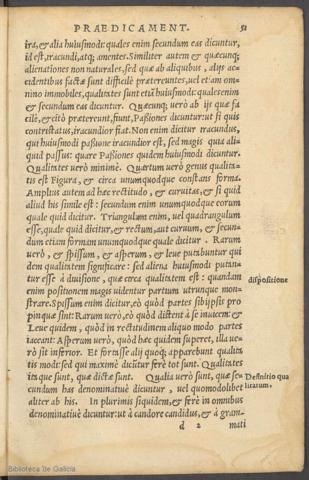 PRAEDICAMENT. 51
ira, & alia huiusmodi: quales enim secundum eas dicuntur,
id est, iracundi, atq; amentes. Similiter autem & quæcunq;
alienationes non naturales, sed quæ ab aliquibus, alijs acs
cidentibus factæ sunt difficile prætereuntes, uel et iam oms
nino immobiles, qualitates sunt etiā huiusmodi: quales enim
& secundum eas dicuntur. Quæcunq; uerò ab ijs quæ fas
cilè, & citò prætereunt, fiunt, Passiones dicuntur: ut si quis
contristatus, iracundior fiat. Non enim dicitur iracundus,
qui huiusmodi passione iracundior est, sed magis quia alis
quid passus: quare Passiones quidem huiusmodi dicuntur.
Qualitates uerò minimè. Quartum uerò genus qualitas
tis est Figura, & circa unumquodque constans forma.
Amplius autem ad hæc rectitudo, & curuitas, & si quid
aliud his simile est: secundum enim unumquodque eorum
quale quid dicitur. Triangulum enim, uel quadrangulum
esse, quale quid dicitur, & rectum, aut curuum, & secuns
dum etiam formam unumquodque quale dicitur. Rarum
uerò, & spissum, & asperum, & leue putabuntur qui
dem qualitatem significare: sed aliena huiusmodi putans
tur esse à diuisione, quæ circa qualitatem est: quandam
disposicione
enim positionem magis uidentur partium utrunque mons
strare. Spissum enim dicitur, eò quòd partes sibi ipsis pro
pinquæ sint: Rarum uerò, eò quòd distent à se inuicem: &
Leue quidem, quòd in rectitudinem aliquo modo partes
iaceant: Asperum uerò, quòd hæc quidem superet, illa ues
rò sit inferior. Et fortasse alij quoq; apparebunt qualitas
tis modi: sed qui maximè dicūtur ferè tot sunt. Qualitates
itaque sunt, quæ dictæ sunt. Qualia uerò sunt, quæ ses
Definitio qua
litatum.
cundum has denominatiuè dicuntur, uel quomodolibet
aliter ab his. In plurimis siquidem, & ferè in omnibus
denominatiuè dicuntur: ut à candore candidus, & à grams
d 2 mati
Biblioteca de Galicia